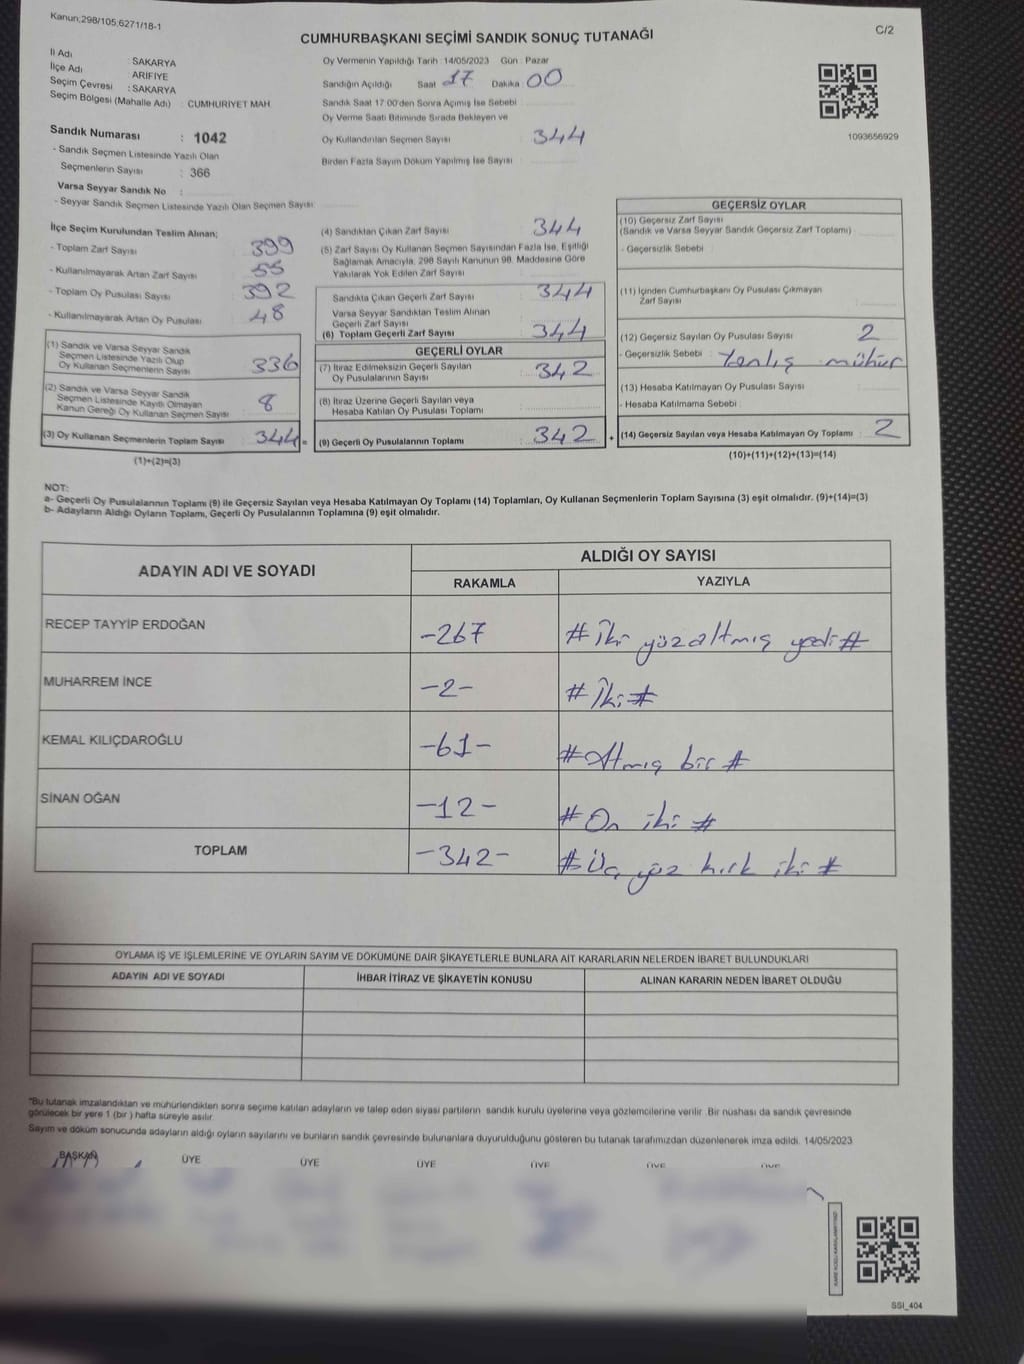 Kanun;298/105;6271/18-1
C/2
CUMHURBAŞKANI SEÇİMİ SANDIK SONUÇ TUTANAĞI
İl Adı : SAKARYA
İlçe Adı : ARİFİYE
Seçim Çevresi : SAKARYA
Seçim Bölgesi (Mahalle Adı) : CUMHURİYET MAH.
Oy Vermenin Yapıldığı Tarih : 14/05/2023 Gün : Pazar
Sandığın Açıldığı Saat 17 Dakika : 00
Sandık Saat 17:00'den Sonra Açılmış İse Sebebi
Oy Verme Saati Bitiminde Sırada Bekleyen ve
Oy Kullandırılan Seçmen Sayısı 344
Birden Fazla Sayım Döküm Yapılmış İse Sayısı
1093656929
Sandık Numarası : 1042
- Sandık Seçmen Listesinde Yazılı Olan
Seçmenlerin Sayısı : 366
Varsa Seyyar Sandık No :
- Seyyar Sandık Seçmen Listesinde Yazılı Olan Seçmen Sayısı:
İlçe Seçim Kurulundan Teslim Alınan;
- Toplam Zarf Sayısı : 399
- Kullanılmayarak Artan Zarf Sayısı : 55
- Toplam Oy Pusulası Sayısı : 392
- Kullanılmayarak Artan Oy Pusulası : 48
(1) Sandık ve Varsa Seyyar Sandık
Seçmen Listesinde Yazılı Olup
Oy Kullanan Seçmenlerin Sayısı : 336
(2) Sandık ve Varsa Seyyar Sandık
Seçmen Listesinde Kayıtlı Olmayan
Kanun Gereği Oy Kullanan Seçmen Sayısı : 8
(3) Oy Kullanan Seçmenlerin Toplam Sayısı : 344 =
(1)+(2)=(3)
(4) Sandıktan Çıkan Zarf Sayısı : 344
(5) Zarf Sayısı Oy Kullanan Seçmen Sayısından Fazla İse, Eşitliği
Sağlamak Amacıyla, 298 Sayılı Kanunun 98. Maddesine Göre
Yakılarak Yok Edilen Zarf Sayısı
Sandıkta Çıkan Geçerli Zarf Sayısı : 344
Varsa Seyyar Sandıktan Teslim Alınan
Geçerli Zarf Sayısı
(6) Toplam Geçerli Zarf Sayısı : 344
GEÇERLİ OYLAR
(7) İtiraz Edilmeksizin Geçerli Sayılan
Oy Pusulalarının Sayısı : 342
(8) İtiraz Üzerine Geçerli Sayılan veya
Hesaba Katılan Oy Pusulası Toplamı :
(9) Geçerli Oy Pusulalarının Toplamı : 342 +
GEÇERSİZ OYLAR
(10) Geçersiz Zarf Sayısı
(Sandık ve Varsa Seyyar Sandık Geçersiz Zarf Toplamı) :
- Geçersizlik Sebebi :
(11) İçinden Cumhurbaşkanı Oy Pusulası Çıkmayan
Zarf Sayısı
(12) Geçersiz Sayılan Oy Pusulası Sayısı : 2
- Geçersizlik Sebebi : Yanlış mühür
(13) Hesaba Katılmayan Oy Pusulası Sayısı :
- Hesaba Katılmama Sebebi
(14) Geçersiz Sayılan veya Hesaba Katılmayan Oy Toplamı : 2
(10)+(11)+(12)+(13)=(14)
NOT:
a- Geçerli Oy Pusulalarının Toplamı (9) ile Geçersiz Sayılan veya Hesaba Katılmayan Oy Toplamı (14) Toplamları, Oy Kullanan Seçmenlerin Toplam Sayısına (3) eşit olmalıdır. (9)+(14)=(3)
b- Adayların Aldığı Oyların Toplamı, Geçerli Oy Pusulalarının Toplamına (9) eşit olmalıdır.
ADAYIN ADI VE SOYADI
ALDIĞI OY SAYISI
RAKAMLA YAZIYLA
RECEP TAYYİP ERDOĞAN -267 # İki yüzaltmış yedi #
MUHARREM İNCE -2- # İki #
KEMAL KILIÇDAROĞLU -61- # Altmış bir #
SİNAN OĞAN -12- # On iki #
TOPLAM -342- # Üç yüz kırk iki #
OYLAMA İŞ VE İŞLEMLERİNE VE OYLARIN SAYIM VE DÖKÜMÜNE DAİR ŞİKAYETLERLE BUNLARA AİT KARARLARIN NELERDEN İBARET BULUNDUKLARI
ADAYIN ADI VE SOYADI İHBAR İTİRAZ VE ŞİKAYETİN KONUSU ALINAN KARARIN NEDEN İBARET OLDUĞU
*Bu tutanak imzalandıktan ve mühürlendikten sonra seçime katılan adayların ve talep eden siyasi partilerin sandık kurulu üyelerine veya gözlemcilerine verilir. Bir nüshası da sandık çevresinde
görülecek bir yere 1 (bir ) hafta süreyle asılır.
Sayım ve döküm sonucunda adayların aldığı oyların sayılarını ve bunların sandık çevresinde bulunanlara duyurulduğunu gösteren bu tutanak tarafımızdan düzenlenerek imza edildi. 14/05/2023
BAŞKAN ÜYE ÜYE ÜYE ÜYE ÜYE ÜYE
SSI_404